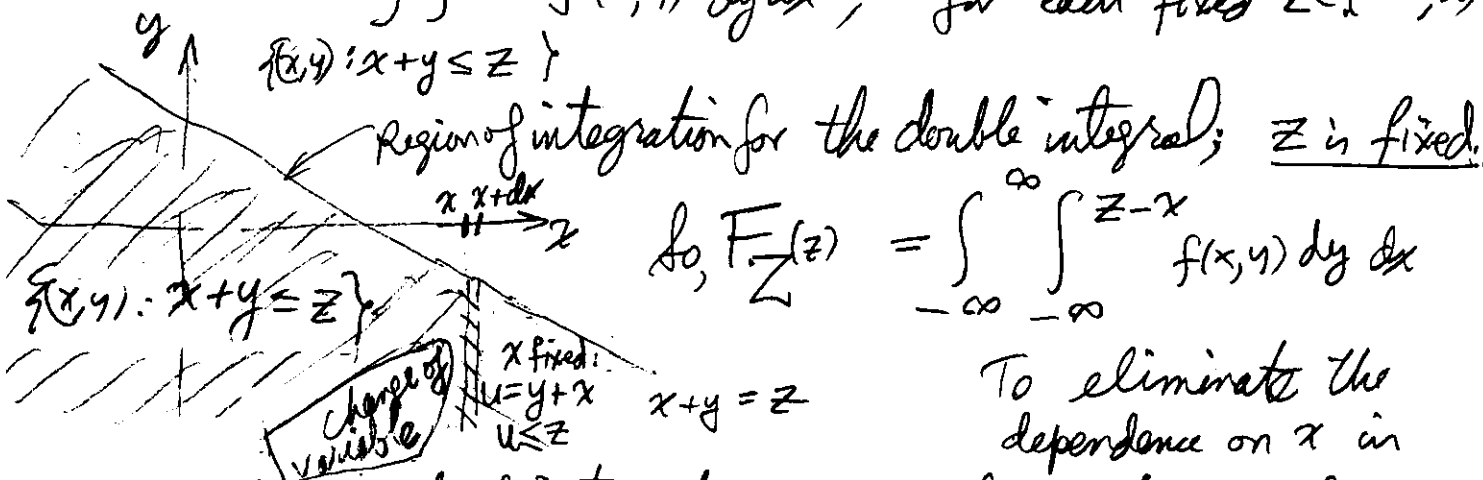 ∫∫ f( , ) dy dx, for each fixed z
{(x,y) : x+y ≤ z}
y
Region of integration for the double integral; z is fixed.
x x+dx
x
So, F_Z(z) = ∫_{-∞}^{∞} ∫_{-∞}^{z-x} f(x,y) dy dx
{(x,y) : x+y ≤ z}
change of
variable
x fixed:
u=y+x
u≤z
x+y = z
To eliminate the
dependence on x in